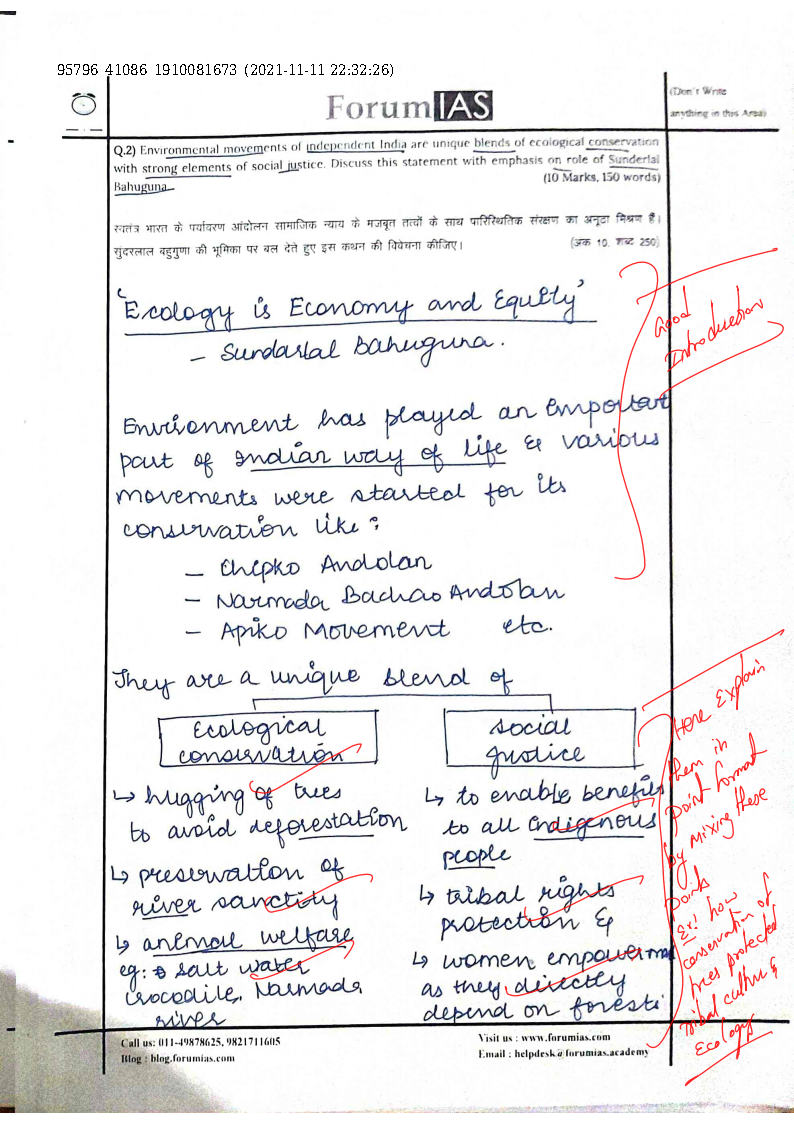 95796 41086 1910081673 (2021-11-11 22:32:26)
ForumIAS
(Don't Write
anything in this Area)
Q.2) Environmental movements of independent India are unique blends of ecological conservation
with strong elements of social justice. Discuss this statement with emphasis on role of Sunderlal
Bahuguna.
(10 Marks, 150 words)
स्वतंत्र भारत के पर्यावरण आंदोलन सामाजिक न्याय के मजबूत तत्वों के साथ पारिस्थितिक संरक्षण का अनूठा मिश्रण हैं।
सुंदरलाल बहुगुणा की भूमिका पर बल देते हुए इस कथन की विवेचना कीजिए।
(अंक 10, शब्द 250)
'Ecology is Economy and Equity'
- Sundarlal Bahuguna.
Good
Introduction
Environment has played an important
part of Indian way of life & various
movements were started for its
conservation like:
- Chipko Andolan
- Narmada Bachao Andolan
- Apiko Movement etc.
They are a unique blend of
Ecological
conservation
↳ hugging of trees
to avoid deforestation
↳ preservation of
river sanctity
↳ animal welfare
eg: salt water
crocodile, Narmada
river
social
justice
↳ to enable benefits
to all indigenous
people
↳ tribal rights
protection &
↳ women empowerm
as they directly
depend on forests
Here Explain
them in
point format
by mixing these
points
Ex! how
conservation of
trees protected
tribal culture &
Ecology
Call us: 011-49878625, 9821711605
Blog : blog.forumias.com
Visit us : www.forumias.com
Email : helpdesk@forumias.academy